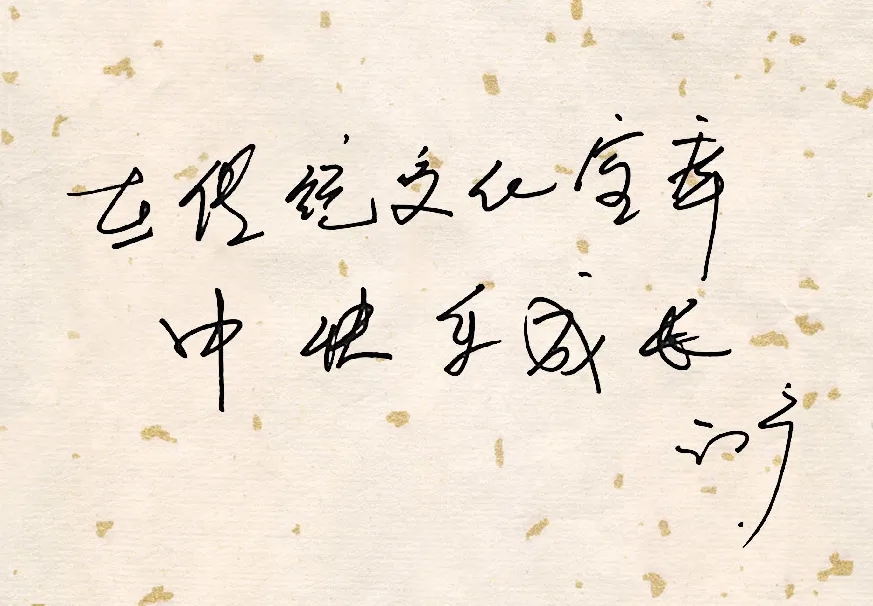 在传统文化宝库
中快乐成长